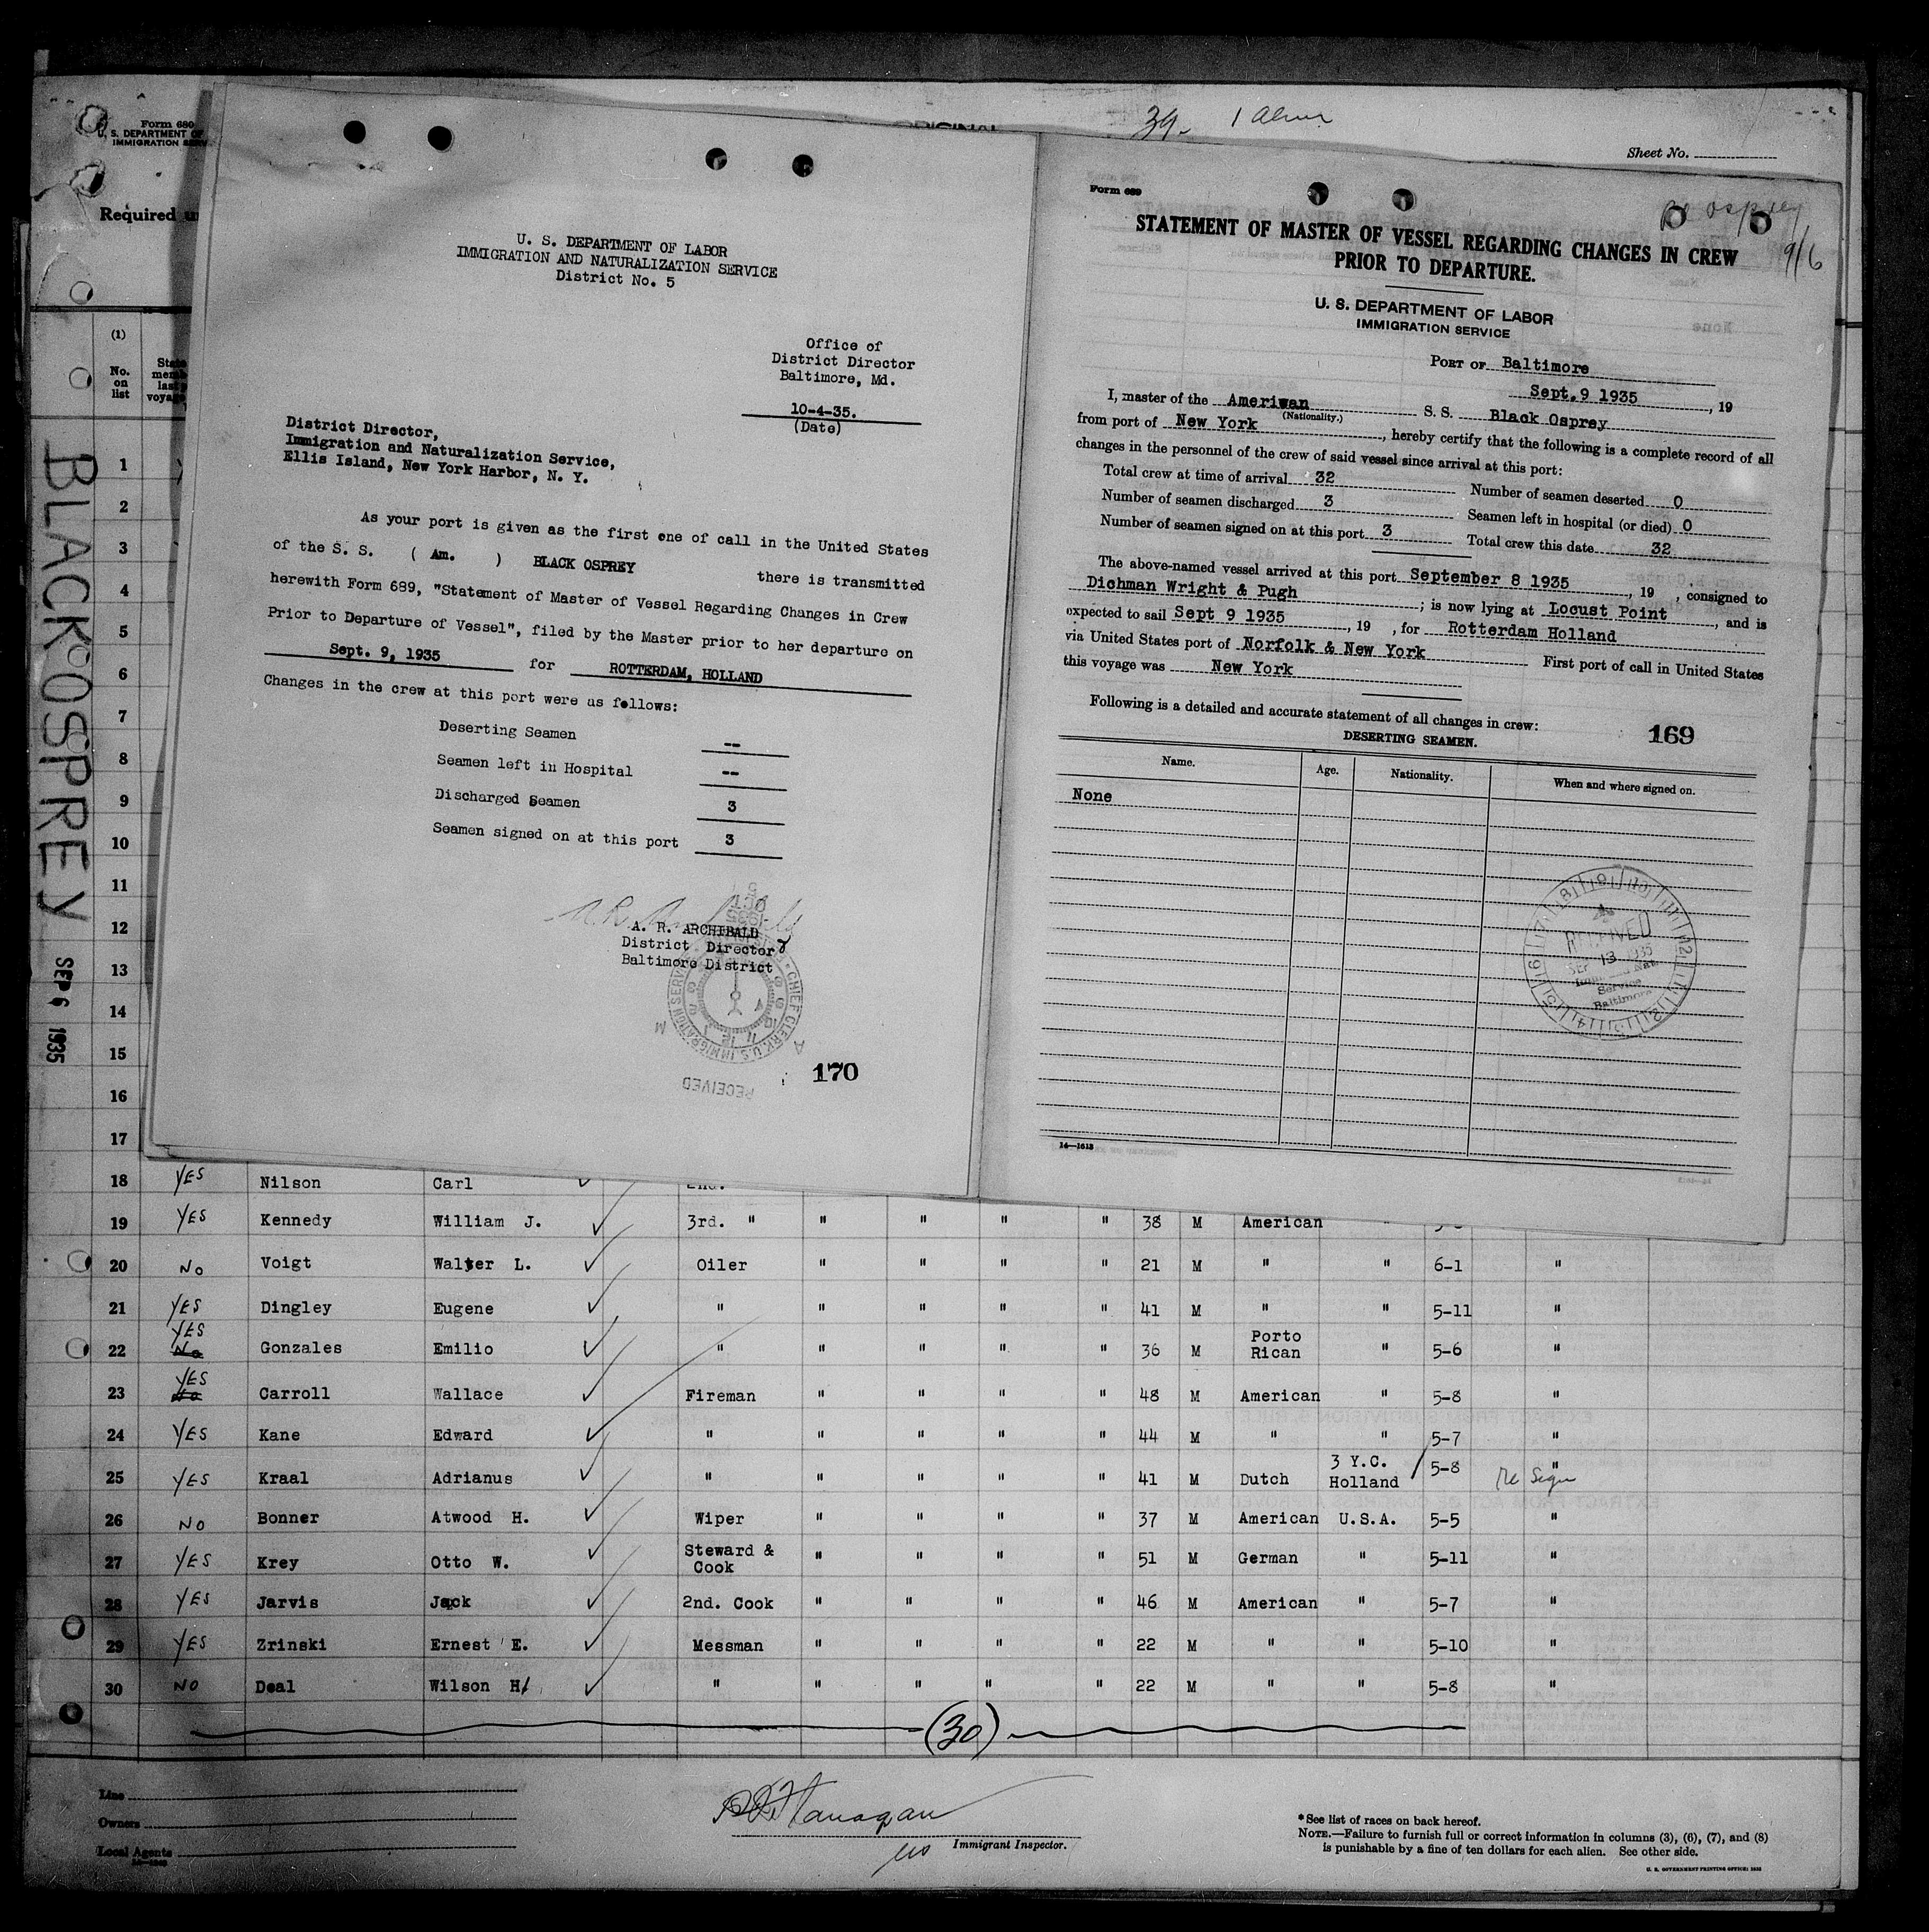 39. 1 Alien
ORIGINAL
Sheet No.
Form 680
U. S. DEPARTMENT OF
IMMIGRATION SERV
Required un
(1)
No.
on
list
State
memb
last
voyage
BLACK OSPREY
SEP 6 1935
U. S. DEPARTMENT OF LABOR
IMMIGRATION AND NATURALIZATION SERVICE
District No. 5
Office of
District Director
Baltimore, Md.
10-4-35.
(Date)
District Director,
Immigration and Naturalization Service,
Ellis Island, New York Harbor, N. Y.
As your port is given as the first one of call in the United States
of the S. S. ( Am. ) BLACK OSPREY there is transmitted
herewith Form 689, "Statement of Master of Vessel Regarding Changes in Crew
Prior to Departure of Vessel", filed by the Master prior to her departure on
Sept. 9, 1935 for ROTTERDAM, HOLLAND
Changes in the crew at this port were as follows:
Deserting Seamen --
Seamen left in Hospital --
Discharged Seamen 3
Seamen signed on at this port 3
A. R. ARCHIBALD
District Director
Baltimore District
CHIEF CLERK, U.S. IMMIGRATION SERVICE
RECEIVED
170
Form 689
Bl Osprey
9/6
STATEMENT OF MASTER OF VESSEL REGARDING CHANGES IN CREW
PRIOR TO DEPARTURE.
U. S. DEPARTMENT OF LABOR
IMMIGRATION SERVICE
PORT OF Baltimore
Sept. 9 1935, 19
I, master of the Ameriwan S. S. Black Osprey
(Nationality.)
from port of New York, hereby certify that the following is a complete record of all
changes in the personnel of the crew of said vessel since arrival at this port:
Total crew at time of arrival 32 Number of seamen deserted 0
Number of seamen discharged 3 Seamen left in hospital (or died) 0
Number of seamen signed on at this port 3 Total crew this date 32
The above-named vessel arrived at this port September 8 1935, 19 , consigned to
Dichman Wright & Pugh; is now lying at Locust Point, and is
expected to sail Sept 9 1935, 19 , for Rotterdam Holland
via United States port of Norfolk & New York First port of call in United States
this voyage was New York
Following is a detailed and accurate statement of all changes in crew:
169
DESERTING SEAMEN.
Name. Age. Nationality. When and where signed on.
None
RECEIVED
SEP 13 1935
Imm. and Nat.
Service
Baltimore
14—1613
1
2
3
4
5
6
7
8
9
10
11
12
13
14
15
16
17
18 YES Nilson Carl 2nd.
19 YES Kennedy William J. 3rd. " " " " " 38 M American "
20 No Voigt Walter L. Oiler " " " " 21 M " " 6-1 "
21 YES Dingley Eugene " " " " " 41 M " " 5-11 "
22 YES No Gonzales Emilio " " " " " 36 M Porto Rican " 5-6 "
23 YES No Carroll Wallace Fireman " " " " 48 M American " 5-8 "
24 YES Kane Edward " " " " " 44 M " " 5-7 "
25 YES Kraal Adrianus " " " " " 41 M Dutch 3 Y.C. Holland 5-8 "
26 NO Bonner Atwood H. Wiper " " " " 37 M American U.S.A. 5-5 "
27 YES Krey Otto W. Steward & Cook " " " " 51 M German " 5-11 "
28 YES Jarvis Jack 2nd. Cook " " " " 46 M American " 5-7 "
29 YES Zrinski Ernest E. Messman " " " " 22 M " " 5-10 "
30 NO Deal Wilson H. " " " " " 22 M " " 5-8 "
(30)
Line
Owners
Local Agents
Flanagan
Immigrant Inspector.
* See list of races on back hereof.
NOTE.—Failure to furnish full or correct information in columns (3), (6), (7), and (8)
is punishable by a fine of ten dollars for each alien. See other side.
U. S. GOVERNMENT PRINTING OFFICE: 1932